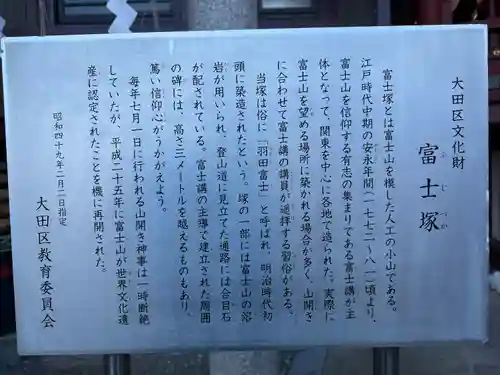 大田区文化財
富士塚
ふじづか
富士塚とは富士山を模した人工の小山である。
江戸時代中期の安永年間(一七七二~八一)頃より、
富士山を信仰する有志の集まりである富士講が主
体となって、関東を中心に各地で造られた。実際に
富士山を望める場所に築かれる場合が多く、山開き
に合わせて富士講の講員が遥拝する習俗がある。
当塚は俗に「羽田富士」と呼ばれ、明治時代初
頭に築造されたという。塚の一部には富士山の溶
岩が用いられ、登山道に見立てた通路には合目石
が配されている。富士講の主導で建立された周囲
の碑には、高さ三メートルを越えるものもあり、
篤い信仰心がうかがえよう。
毎年七月一日に行われる山開き神事は一時断絶
していたが、平成二十五年に富士山が世界文化遺
産に認定されたことを機に再開された。
昭和四十九年二月二日指定
大田区教育委員会